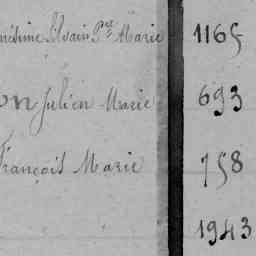 Silvain P.re Marie 1165
on Julien Marie 693
François Marie 758
1943